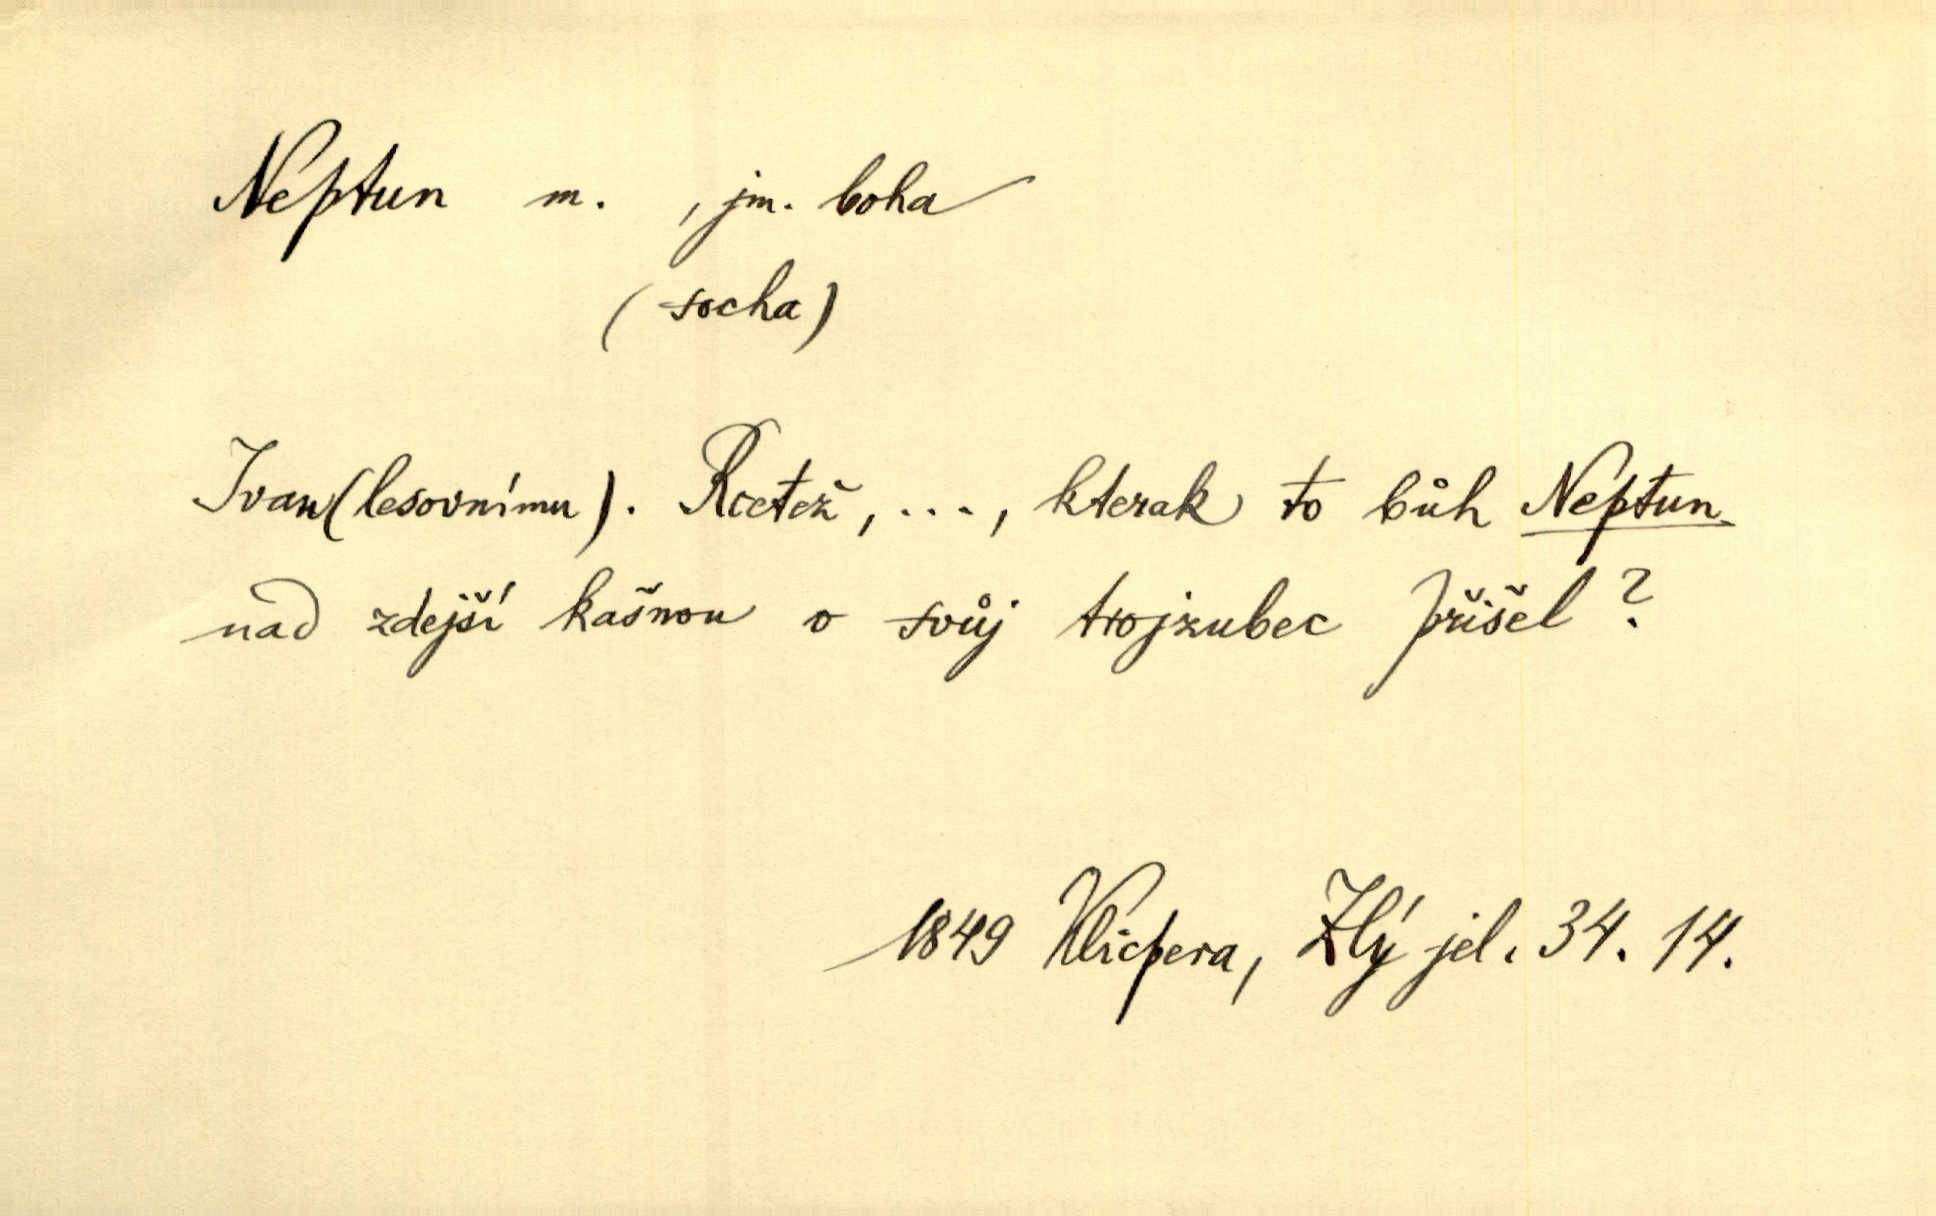 Neptun m. , jm. boha
(socha)
Ivan (lesovnímu). Rcetež, ..., kterak to bůh Neptun
nad zdejší kašnou o svůj trojzubec přišel?
1849 Klicpera, Zlý jel. 34. 14.